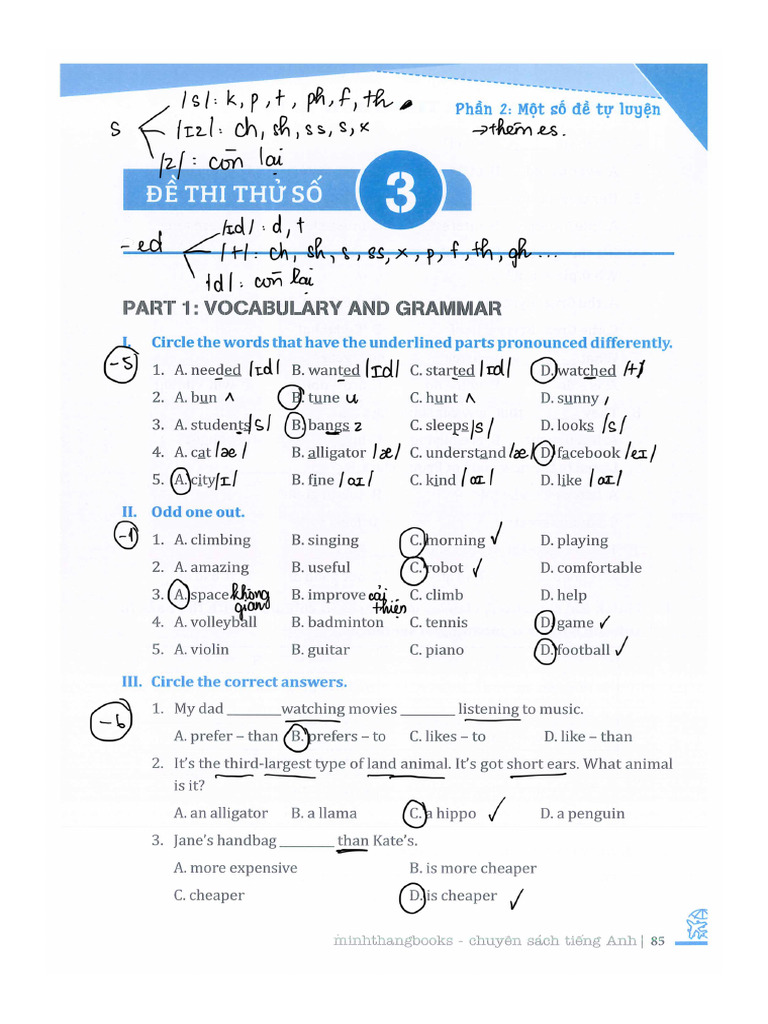 /s/: k, p, t, ph, f, th
Phần 2: Một số đề tự luyện
s
/ɪz/: ch, sh, ss, s, x
→ thêm es.
/z/: còn lại
ĐỀ THI THỬ SỐ 3
/ɪd/: d, t
-ed
/t/: ch, sh, s, ss, x, p, f, th, gh...
/d/: còn lại
PART 1: VOCABULARY AND GRAMMAR
I. Circle the words that have the underlined parts pronounced differently.
-5
1. A. needed /ɪd/ B. wanted /ɪd/ C. started /ɪd/ D. watched /t/
2. A. bun ʌ B. tune u C. hunt ʌ D. sunny ,
3. A. students /s/ B. bangs z C. sleeps /s/ D. looks /s/
4. A. cat /æ/ B. alligator /æ/ C. understand /æ/ D. facebook /eɪ/
5. A. city /ɪ/ B. fine /aɪ/ C. kind /aɪ/ D. like /aɪ/
II. Odd one out.
-1
1. A. climbing B. singing C. morning ✓ D. playing
2. A. amazing B. useful C. robot ✓ D. comfortable
3. A. space không gian B. improve cải thiện C. climb D. help
4. A. volleyball B. badminton C. tennis D. game ✓
5. A. violin B. guitar C. piano D. football ✓
III. Circle the correct answers.
-6
1. My dad ________ watching movies ________ listening to music.
A. prefer – than B. prefers – to C. likes – to D. like – than
2. It's the third-largest type of land animal. It's got short ears. What animal
is it?
A. an alligator B. a llama C. a hippo ✓ D. a penguin
3. Jane's handbag ________ than Kate's.
A. more expensive B. is more cheaper
C. cheaper D. is cheaper ✓
minhthangbooks - chuyên sách tiếng Anh | 85